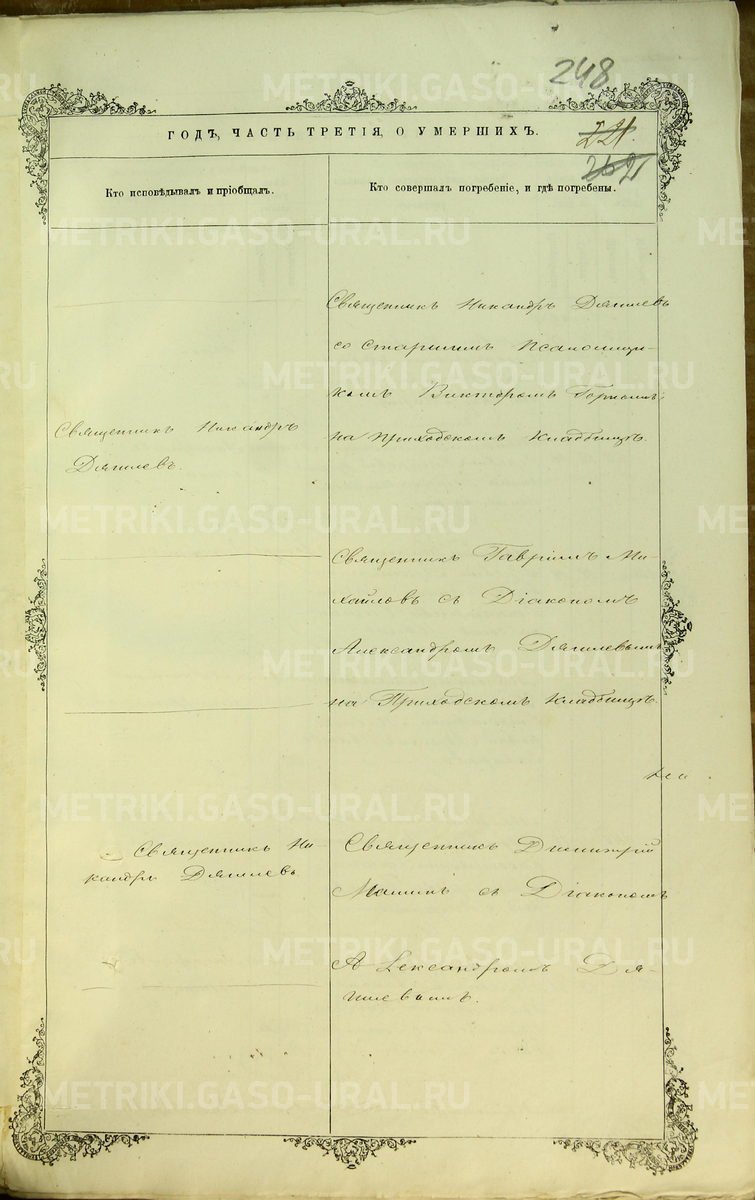 248
ГОДЪ, ЧАСТЬ ТРЕТІЯ, О УМЕРШИХЪ.
221.
Кто исповѣдывалъ и пріобщалъ.
Кто совершалъ погребеніе, и гдѣ погребены.
Священникъ Никандръ
Дягилевъ.
Священникъ Никандръ Дягилевъ
со старшимъ Псаломщи-
комъ Викторомъ
на приходскомъ кладбищѣ.
Священникъ Гавріилъ Ми-
хайловъ съ Діакономъ
Александромъ Дягилевымъ
на Приходскомъ кладбищѣ.
Священникъ Ни-
кандръ Дягилевъ
Священникъ Димитрій
съ Діакономъ
Александромъ Дя-
гилевымъ.
METRIKI.GASO-URAL.RU